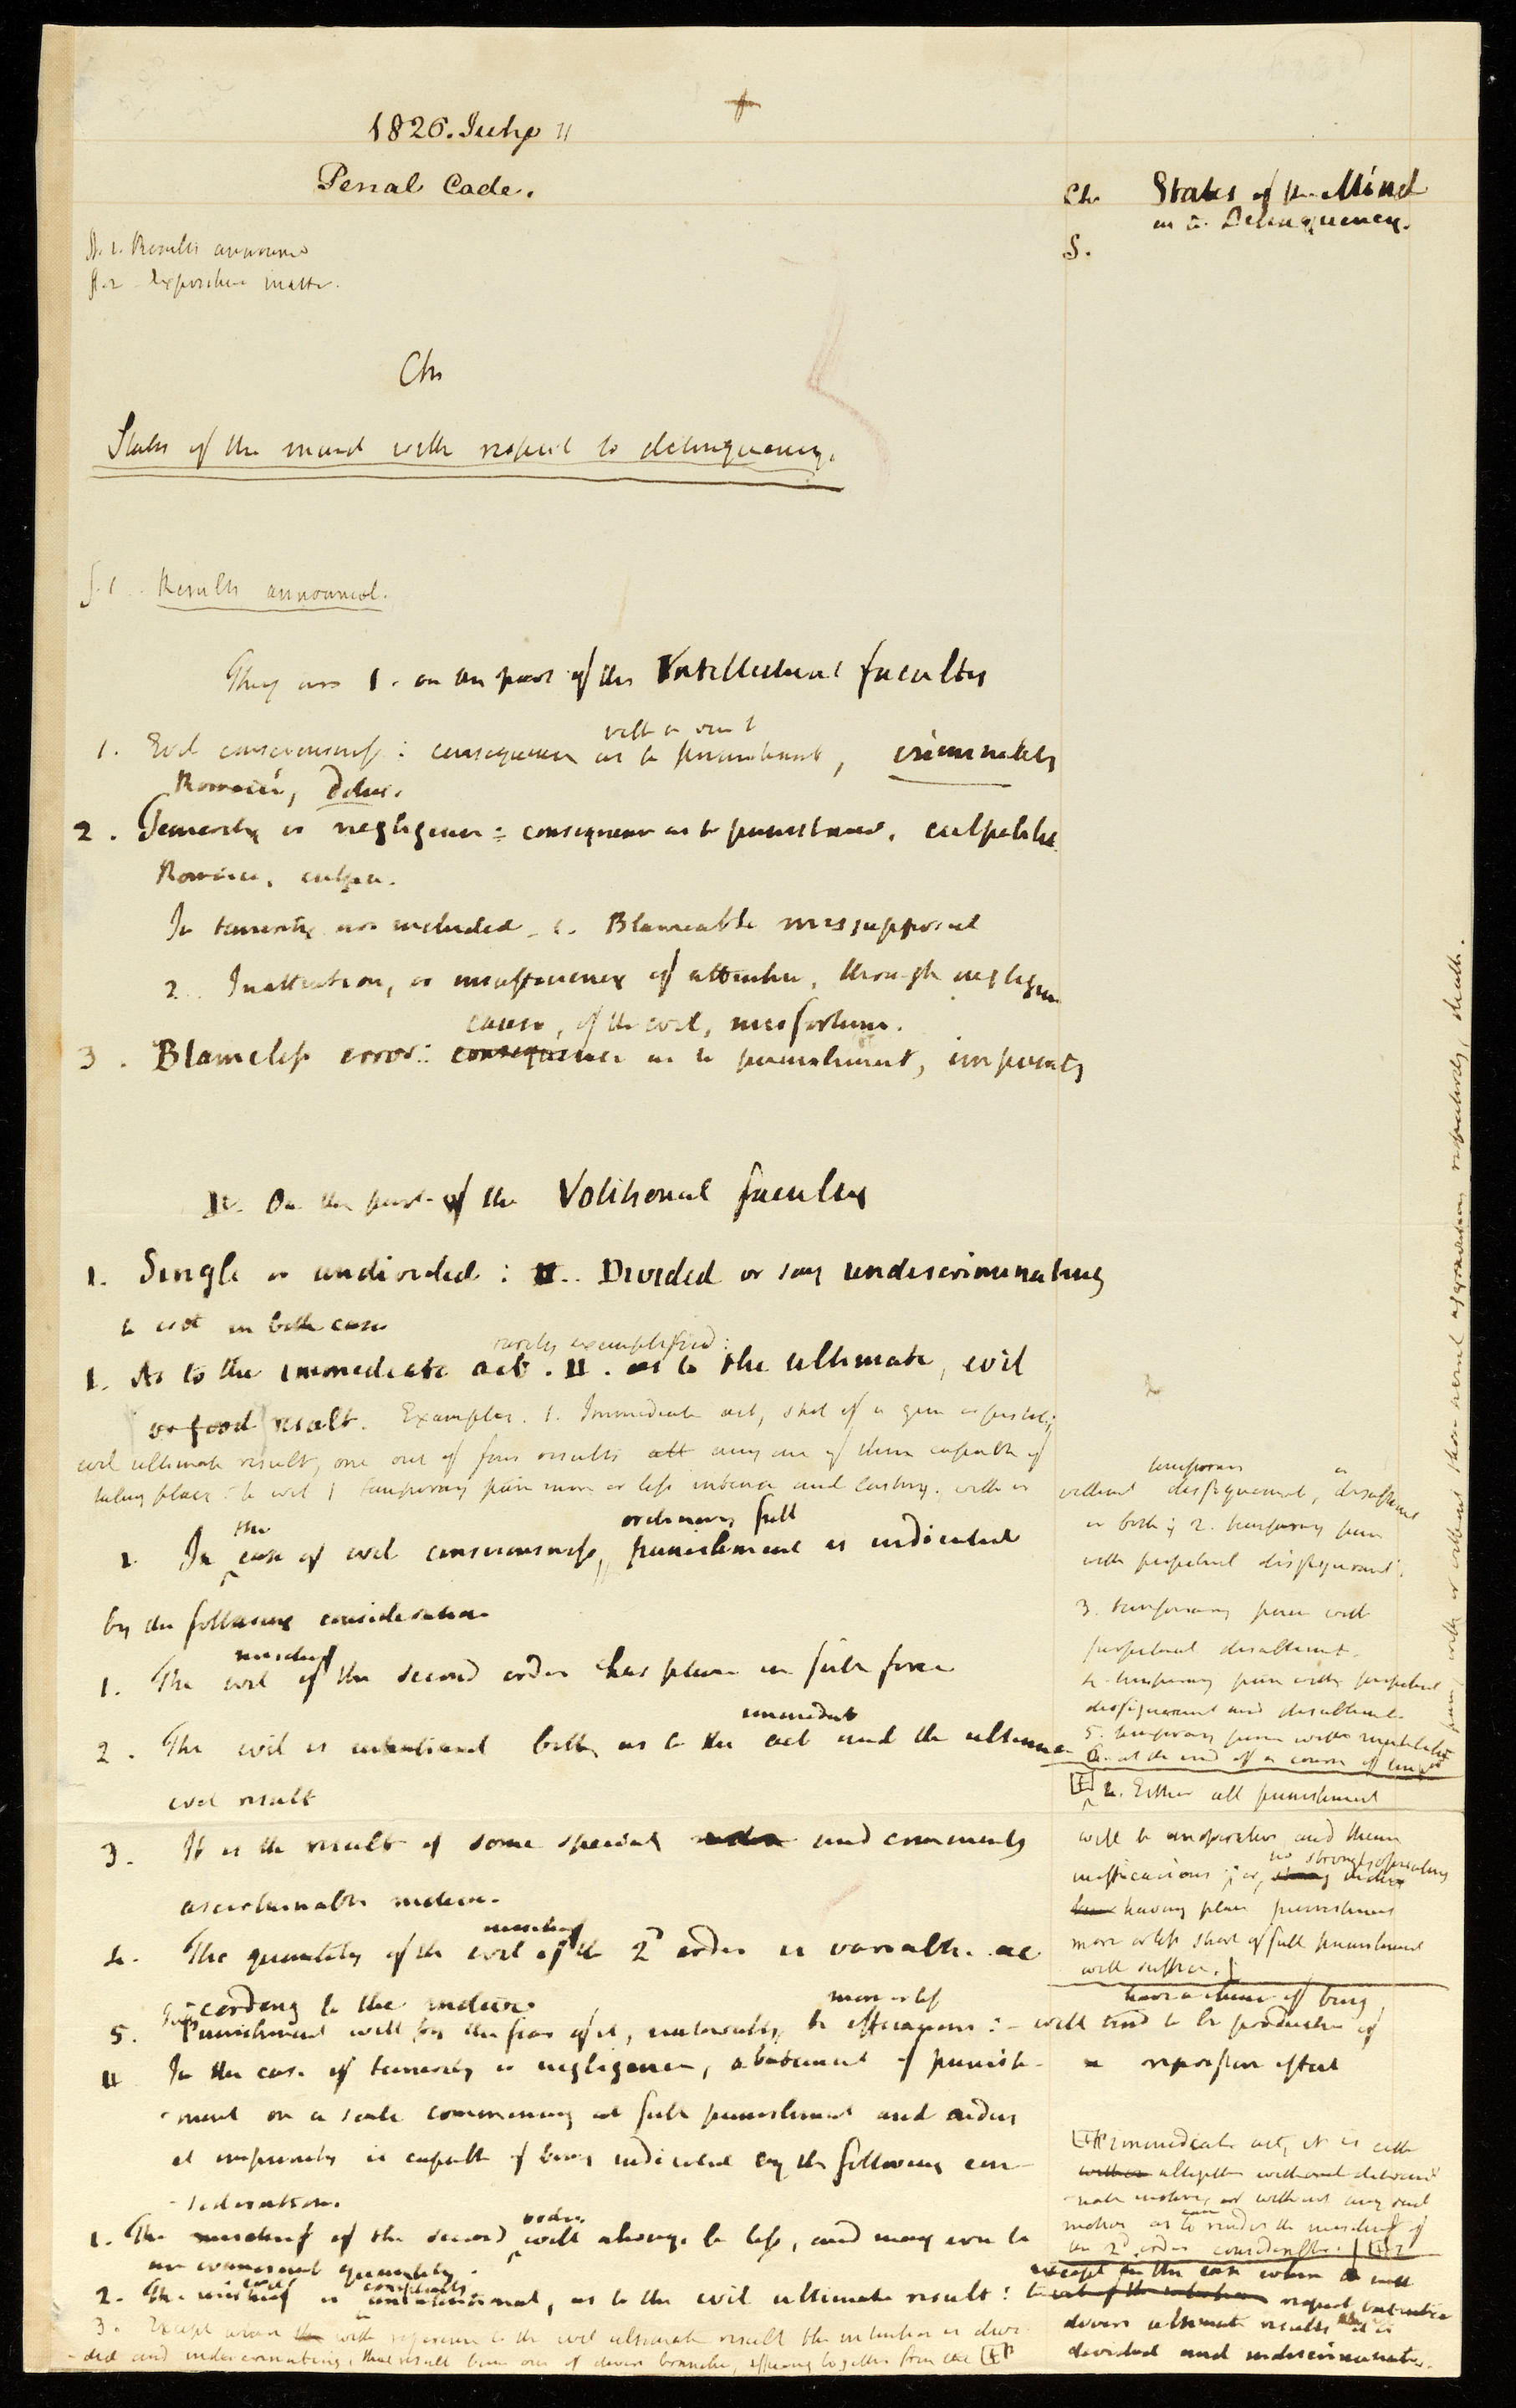 1826. July 11
Penal Code.
Ch. States of the Mind
as to Delinquency.
§.
§. 1. Results announced
§. 2 Expositive matter.
Ch
States of the mind with respect to delinquency.
§. 1. Results announced.
They are I. on the part of the Intellectual faculty
1. Evil consciousness: consequence as to punishment, criminality
Romanicé, Dolus.
2. Temerity or negligence: consequence as to punishment, culpability
Romanicé, culpa.
In temerity are included 1. Blameable missupposal
2. Inattention, or insufficiency of attention, through negligence
cause, of the evil, misfortune.
3. Blameless error: consequence as to punishment, impunity
II. On the part of the Volitional faculty
1. Single or undivided: II. Divided or say undiscriminating
to wit in both cases
rarely exemplified:
1. As to the immediate act. II. as to the ultimate, evil
or good result. Examples. 1. Immediate act, shot of a gun or pistol;
evil ultimate result, one out of four results any one of them capable of
taking place: to wit 1 temporary pain more or less intense and lasting. with or without temporary disfigurement, or disablement
or both; 2. temporary pain
with perpetual disfigurement.
3. temporary pain with
perpetual disablement.
4. temporary pain with perpetual
disfigurement and disablement
5. temporary pain with mutilation
6. at the end of a course of
with or without these several aggravations respectively, death.
the ordinary full
1. In case of evil consciousness, punishment is indicated
by the following considerations
mischief
1. The evil of the second order has place in full force
immediate
2. The evil is intentional both as to the act and the ultimate
evil result
3. It is the result of some special and commonly
ascertainable motive.
mischief
4. The quantity of the evil of the 2d order is variable ac
cording to the motive.
more or less
5. Punishment will by the fear of it, naturally be efficacious: will tend to be productive of
have a chance of being
a repressive effect
II In the case of temerity or negligence, abatement of punish-
ment on a scale commencing at full punishment and ending
at impunity is capable of being indicated by the following con-
siderations.
order
1. The mischief of the second will always be less, and may even be
an evanescent quantity.
evil completely
2. The mischief is unintentional, as to the evil ultimate result: except in the case where
divers ultimate results it is
divided and undiscriminating.
3. Except where with reference to the evil ultimate result the intention is divi-
ded and undiscriminating, that result being one of divers branches, issuing together from the
4. Either all punishment
will be inoperative and thence
inefficacious; or, no strongly operating motive
having place punishment
more or less short of full punishment
will suffice.
immediate act, it is either
altogether without determi-
nate motive, or without any such
motive as can render the mischief of
the 2d order considerable.